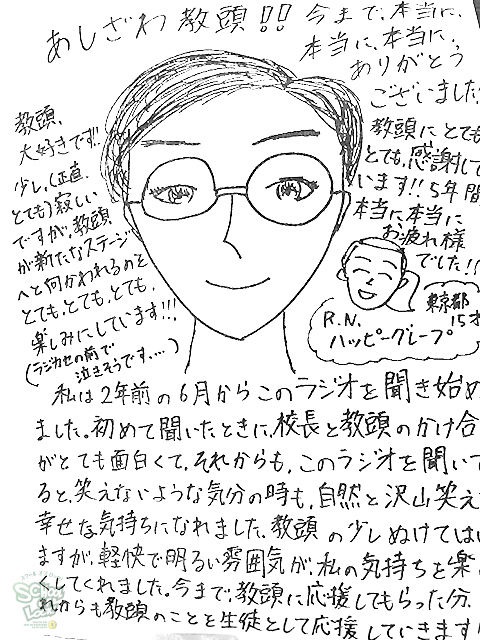 あしざわ教頭!!
今まで、本当に、
本当に、本当に、
ありがとう
ございました
教頭にとても
とても、感謝して
います!!5年間
本当に、本当に
お疲れ様
でした!!
教頭、
大好きです!!
少し、(正直、
とても)寂しい
ですが、教頭
が新たなステージ
へと向かわれるのを
とても、とても、とても、
楽しみにしています!!!
(ラジカセの前で
泣きそうです....)
東京都
15才
R.N.
ハッピーグレープ
私は2年前の6月からこのラジオを聞き始め
ました。初めて聞いたときに、校長と教頭のかけ合
がとても面白くて、それからも、このラジオを聞いて
ると、笑えないような気分の時も、自然と沢山笑え
幸せな気持ちになれました。教頭の少しぬけては
ますが、軽快で明るい雰囲気が、私の気持ちを楽
くしてくれました。今まで、教頭に応援してもらった分、
れからも教頭のことを生徒として応援していきます!